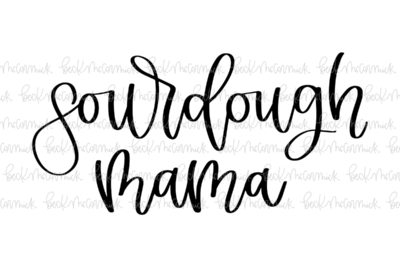 sourdough
mama